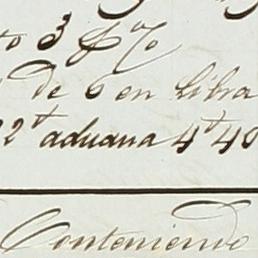 to 3 p%
de 6 en Libra
22t aduana 4t 40
Conteniendo